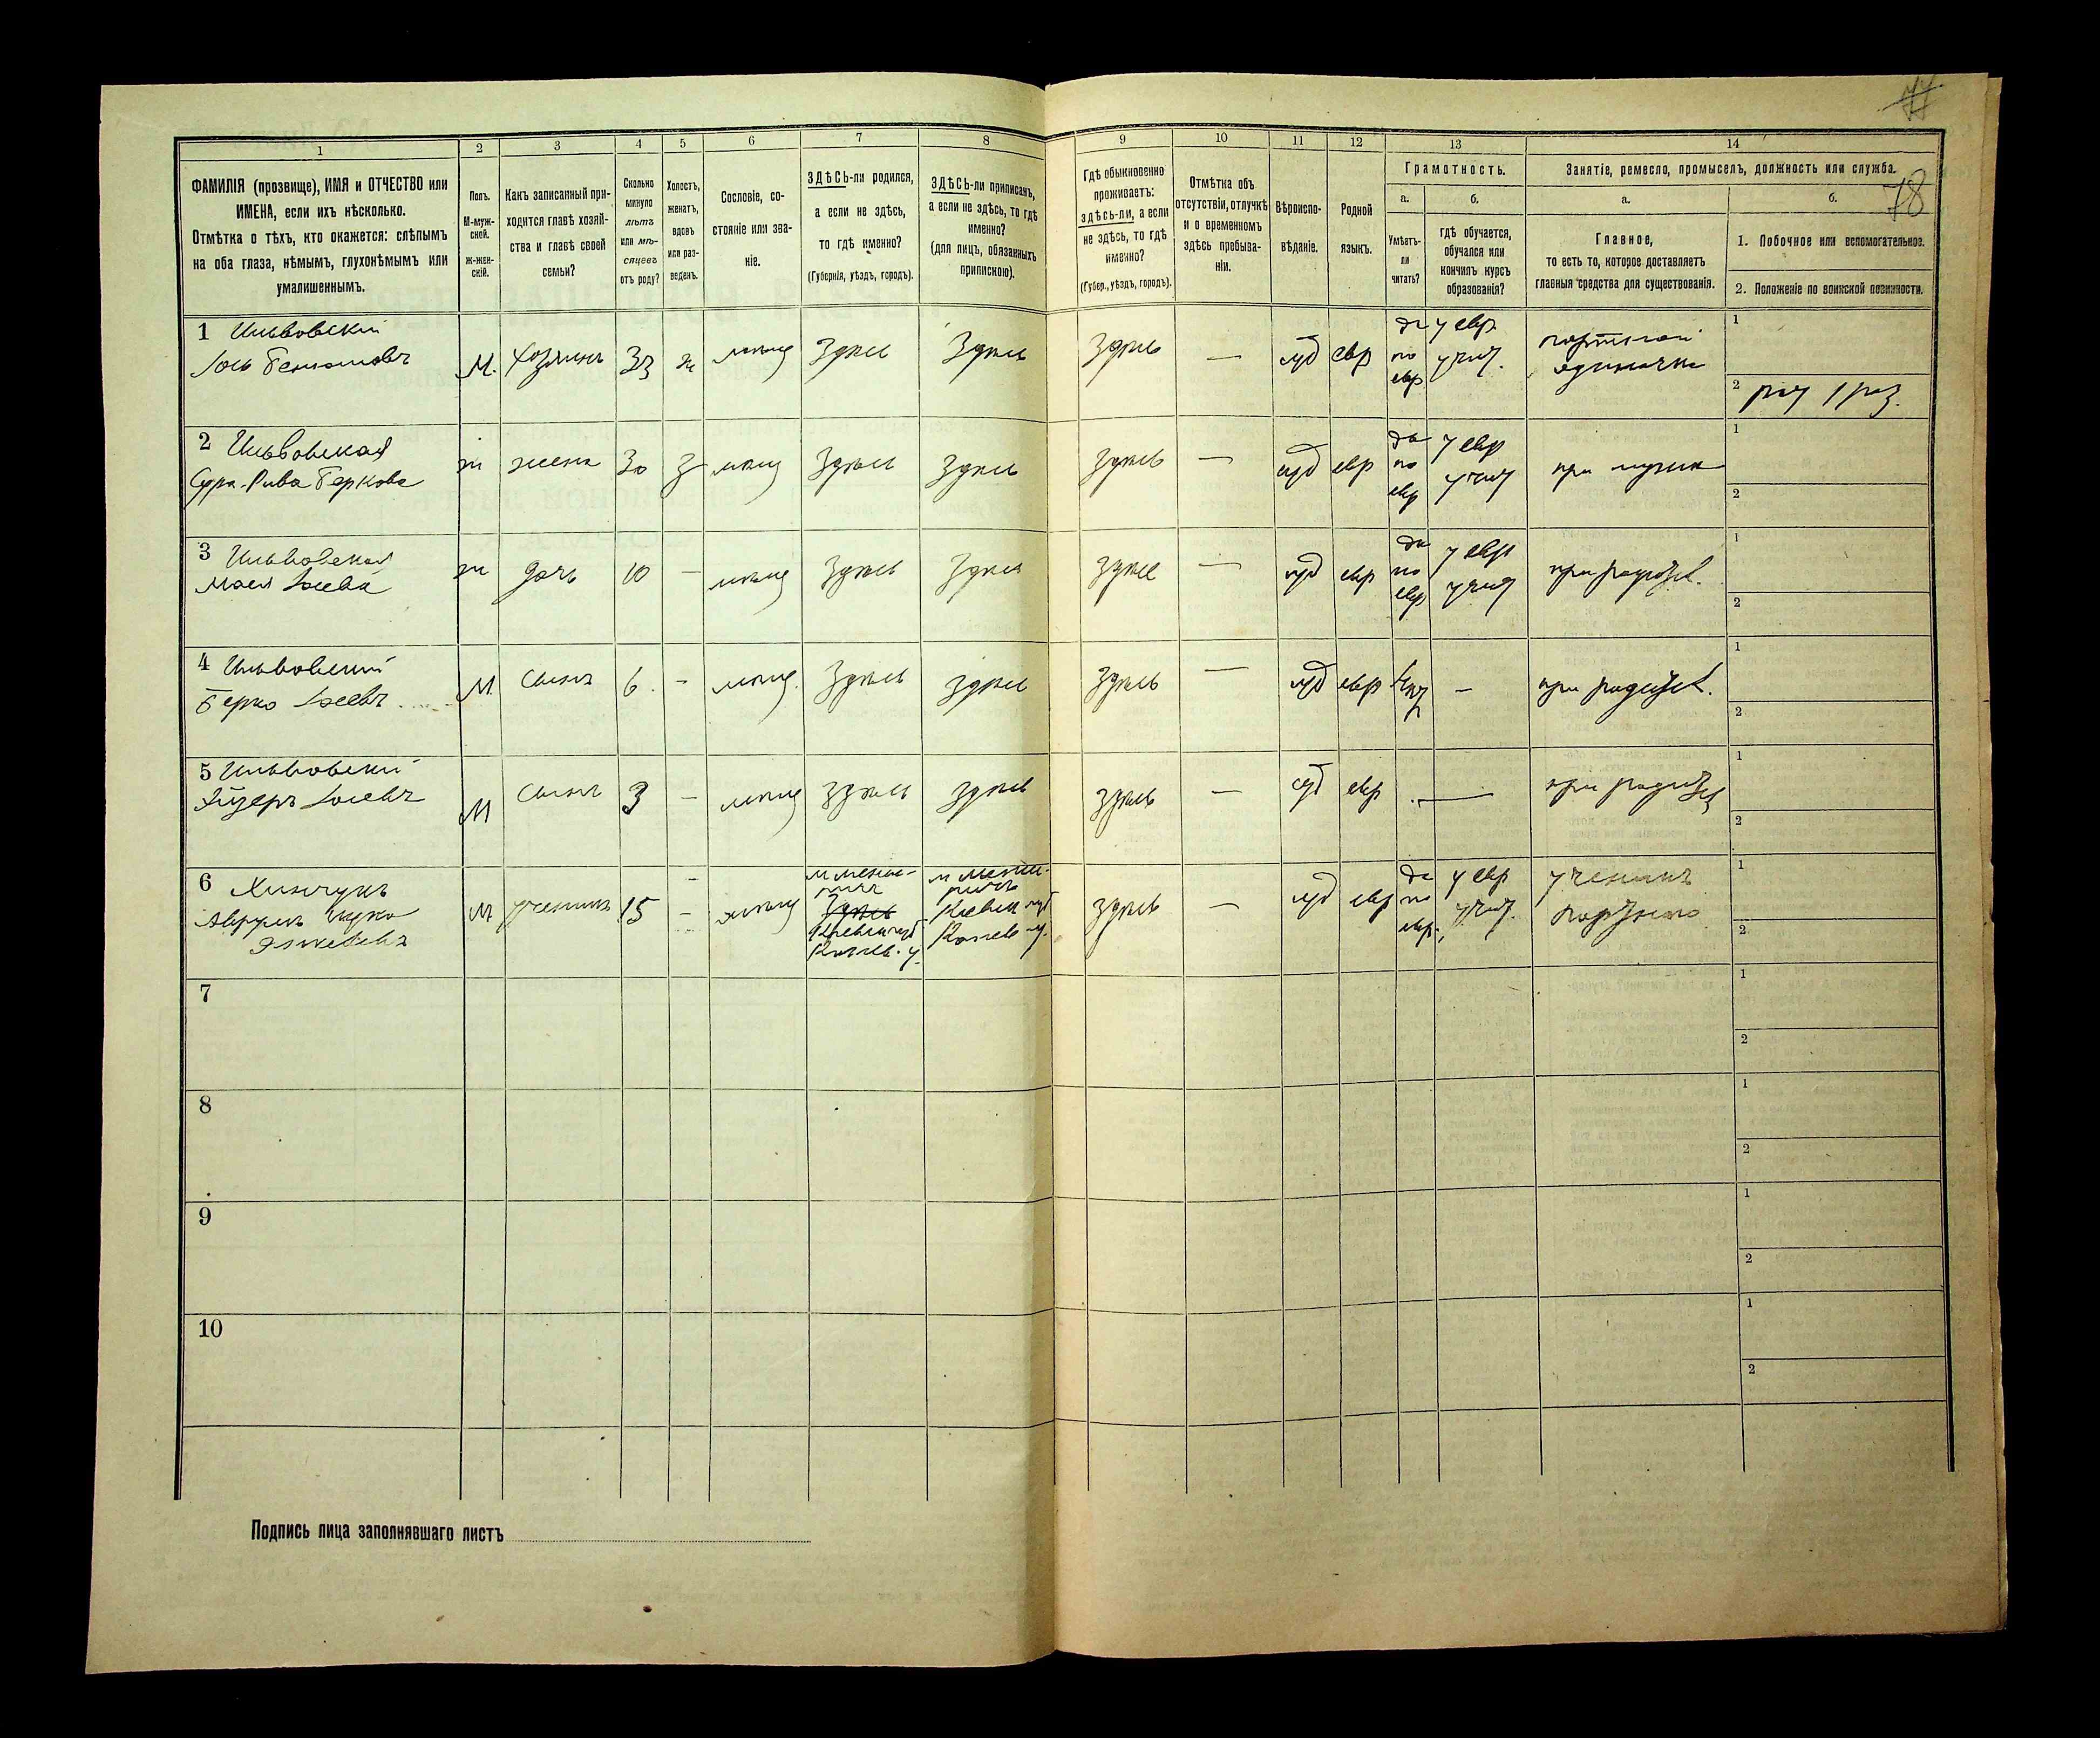 77
78
1
2
3
4
5
6
7
8
9
10
11
12
13
14
ФАМИЛІЯ (прозвище), ИМЯ и ОТЧЕСТВО или
ИМЕНА, если ихъ нѣсколько.
Отмѣтка о тѣхъ, кто окажется: слѣпымъ
на оба глаза, нѣмымъ, глухонѣмымъ или
умалишеннымъ.
Полъ.
М-муж-
ской.
Ж-жен-
скій.
Какъ записанный при-
ходится главѣ хозяй-
ства и главѣ своей
семьи?
Сколько
минуло
лѣтъ
или мѣ-
сяцевъ
отъ роду?
Холостъ,
женатъ,
вдовъ
или раз-
веденъ.
Сословіе, со-
стояніе или зва-
ніе.
ЗДѢСЬ-ли родился,
а если не здѣсь,
то гдѣ именно?
(Губернія, уѣздъ, городъ).
ЗДѢСЬ-ли приписанъ,
а если не здѣсь, то гдѣ
именно?
(для лицъ, обязанныхъ
припискою).
Гдѣ обыкновенно
проживаетъ:
здѣсь-ли, а если
не здѣсь, то гдѣ
именно?
(Губер., уѣздъ, городъ).
Отмѣтка объ
отсутствіи, отлучкѣ
и о временномъ
здѣсь пребыва-
ніи.
Вѣроиспо-
вѣданіе.
Родной
языкъ.
Грамотность.
а.
Умѣетъ-
ли
читать?
б.
гдѣ обучается,
обучался или
кончилъ курсъ
образованія?
Занятіе, ремесло, промыселъ, должность или служба.
а.
Главное,
то есть то, которое доставляетъ
главныя средства для существованія.
б.
1. Побочное или вспомогательное.
2. Положеніе по воинской повинности.
1
М. Хозяинъ 33 ж мѣщ Здѣсь Здѣсь Здѣсь — іуд евр
да по евр
у евр учит.
портной
одиночка
1
2
2
Сура-Рива Беркова
ж жена 30 з мѣщ Здѣсь Здѣсь Здѣсь — іуд евр
да по евр
у евр учит
при мужи
1
2
3
ж дочь 10 — мѣщ Здѣсь Здѣсь Здѣсь — іуд евр
да по евр
у евр учит
при родител.
1
2
4
Берко
М сынъ 6. — мѣщ. Здѣсь Здѣсь Здѣсь — іуд евр
—
при родител.
1
2
5
М сынъ 3 — мѣщ Здѣсь Здѣсь Здѣсь — іуд евр —
при родител
1
2
6
М ученикъ 15 — мѣщ
Кіевск губ
Канев. у.
Кіевск губ
Канев у.
Здѣсь — іуд евр
да по евр.
у евр учит.
ученикъ
портного
1
2
7
1
2
8
1
2
9
1
2
10
1
2
Подпись лица заполнявшаго листъ